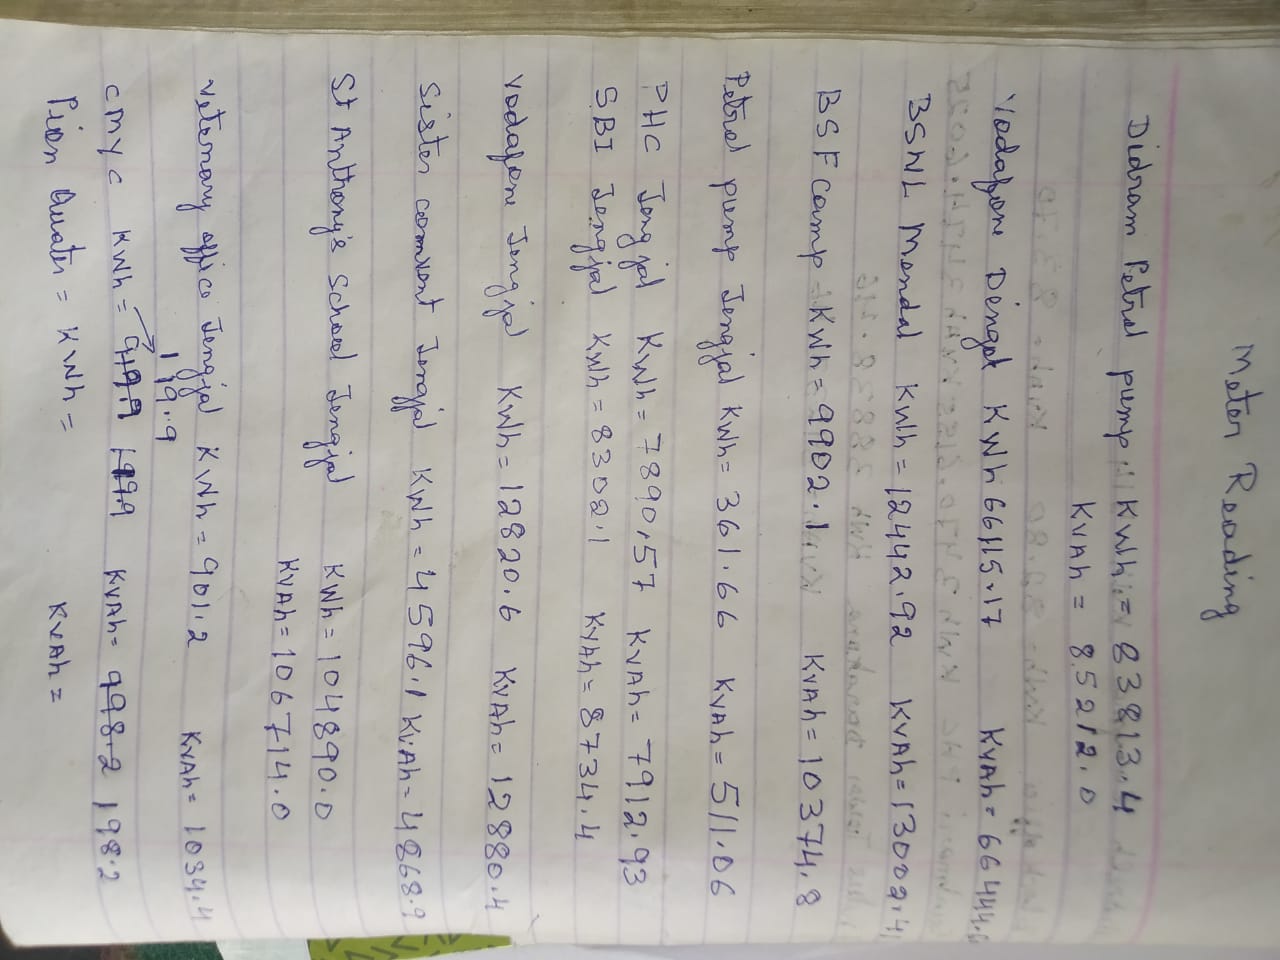 Meter Reading
Didram Petrol pump KWh = 83813.4
KVAh = 85212.0
Vodafone Dengat KWh 66115.17 KVAh = 66444.6
BSNL Mendal KWh = 12442.92 KVAh = 13002.4
BSF camp KWh = 9902.1 KVAh = 10374.8
Petrol pump Jengjal KWh = 361.66 KVAh = 511.06
PHC Jengjal KWh = 7890.57 KVAh = 7912.93
SBI Jengjal KWh = 8302.1 KVAh = 8734.4
Vodafone Jengjal KWh = 12820.6 KVAh = 12880.4
Sister comvont Jengjal KWh = 4596.1 KVAh = 4868.9
St Anthony's School Jengjal KWh = 104890.0
KVAh = 106714.0
Veternary office Jengjal KWh = 901.2 KVAh = 1034.4
119.9
CMYC KWh = 199.9 KVAh = 998.2 198.2
Pion Quater = KWh = KVAh =